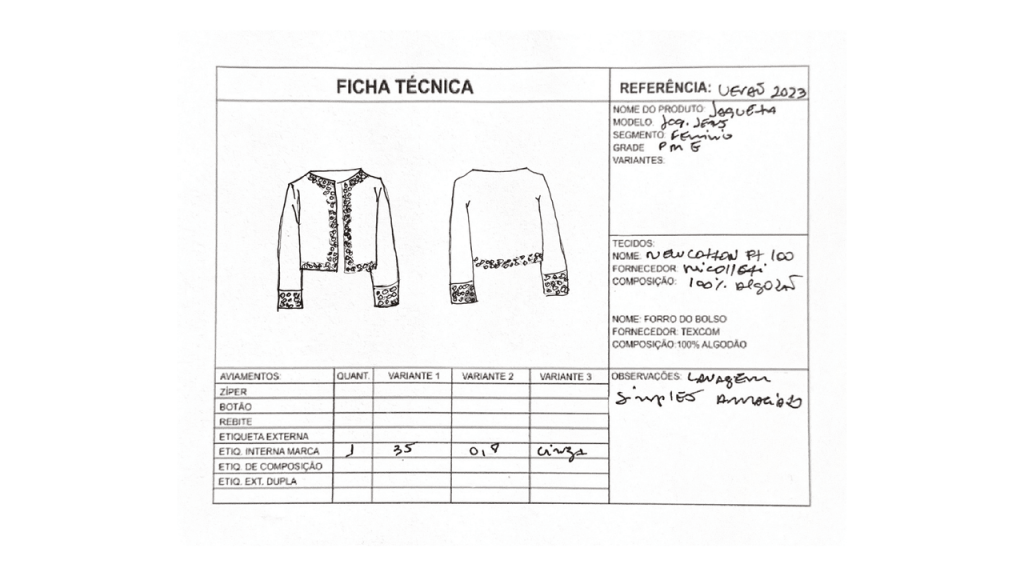 FICHA TÉCNICA
REFERÊNCIA: VERÃO 2023
NOME DO PRODUTO: JAQUETA
MODELO: JAQ. JEANS
SEGMENTO: FEMININO
GRADE P M G
VARIANTES:
TECIDOS:
NOME: NEW COTTON PT 100
FORNECEDOR: NICOLLETTI
COMPOSIÇÃO: 100% ALGODÃO
NOME: FORRO DO BOLSO
FORNECEDOR: TEXCOM
COMPOSIÇÃO:100% ALGODÃO
AVIAMENTOS: QUANT. VARIANTE 1 VARIANTE 2 VARIANTE 3
ZÍPER
BOTÃO
REBITE
ETIQUETA EXTERNA
ETIQ. INTERNA MARCA 1 35 0,8 cinza
ETIQ. DE COMPOSIÇÃO
ETIQ. EXT. DUPLA
OBSERVAÇÕES: LAVAGEM
SIMPLES AMACIADO